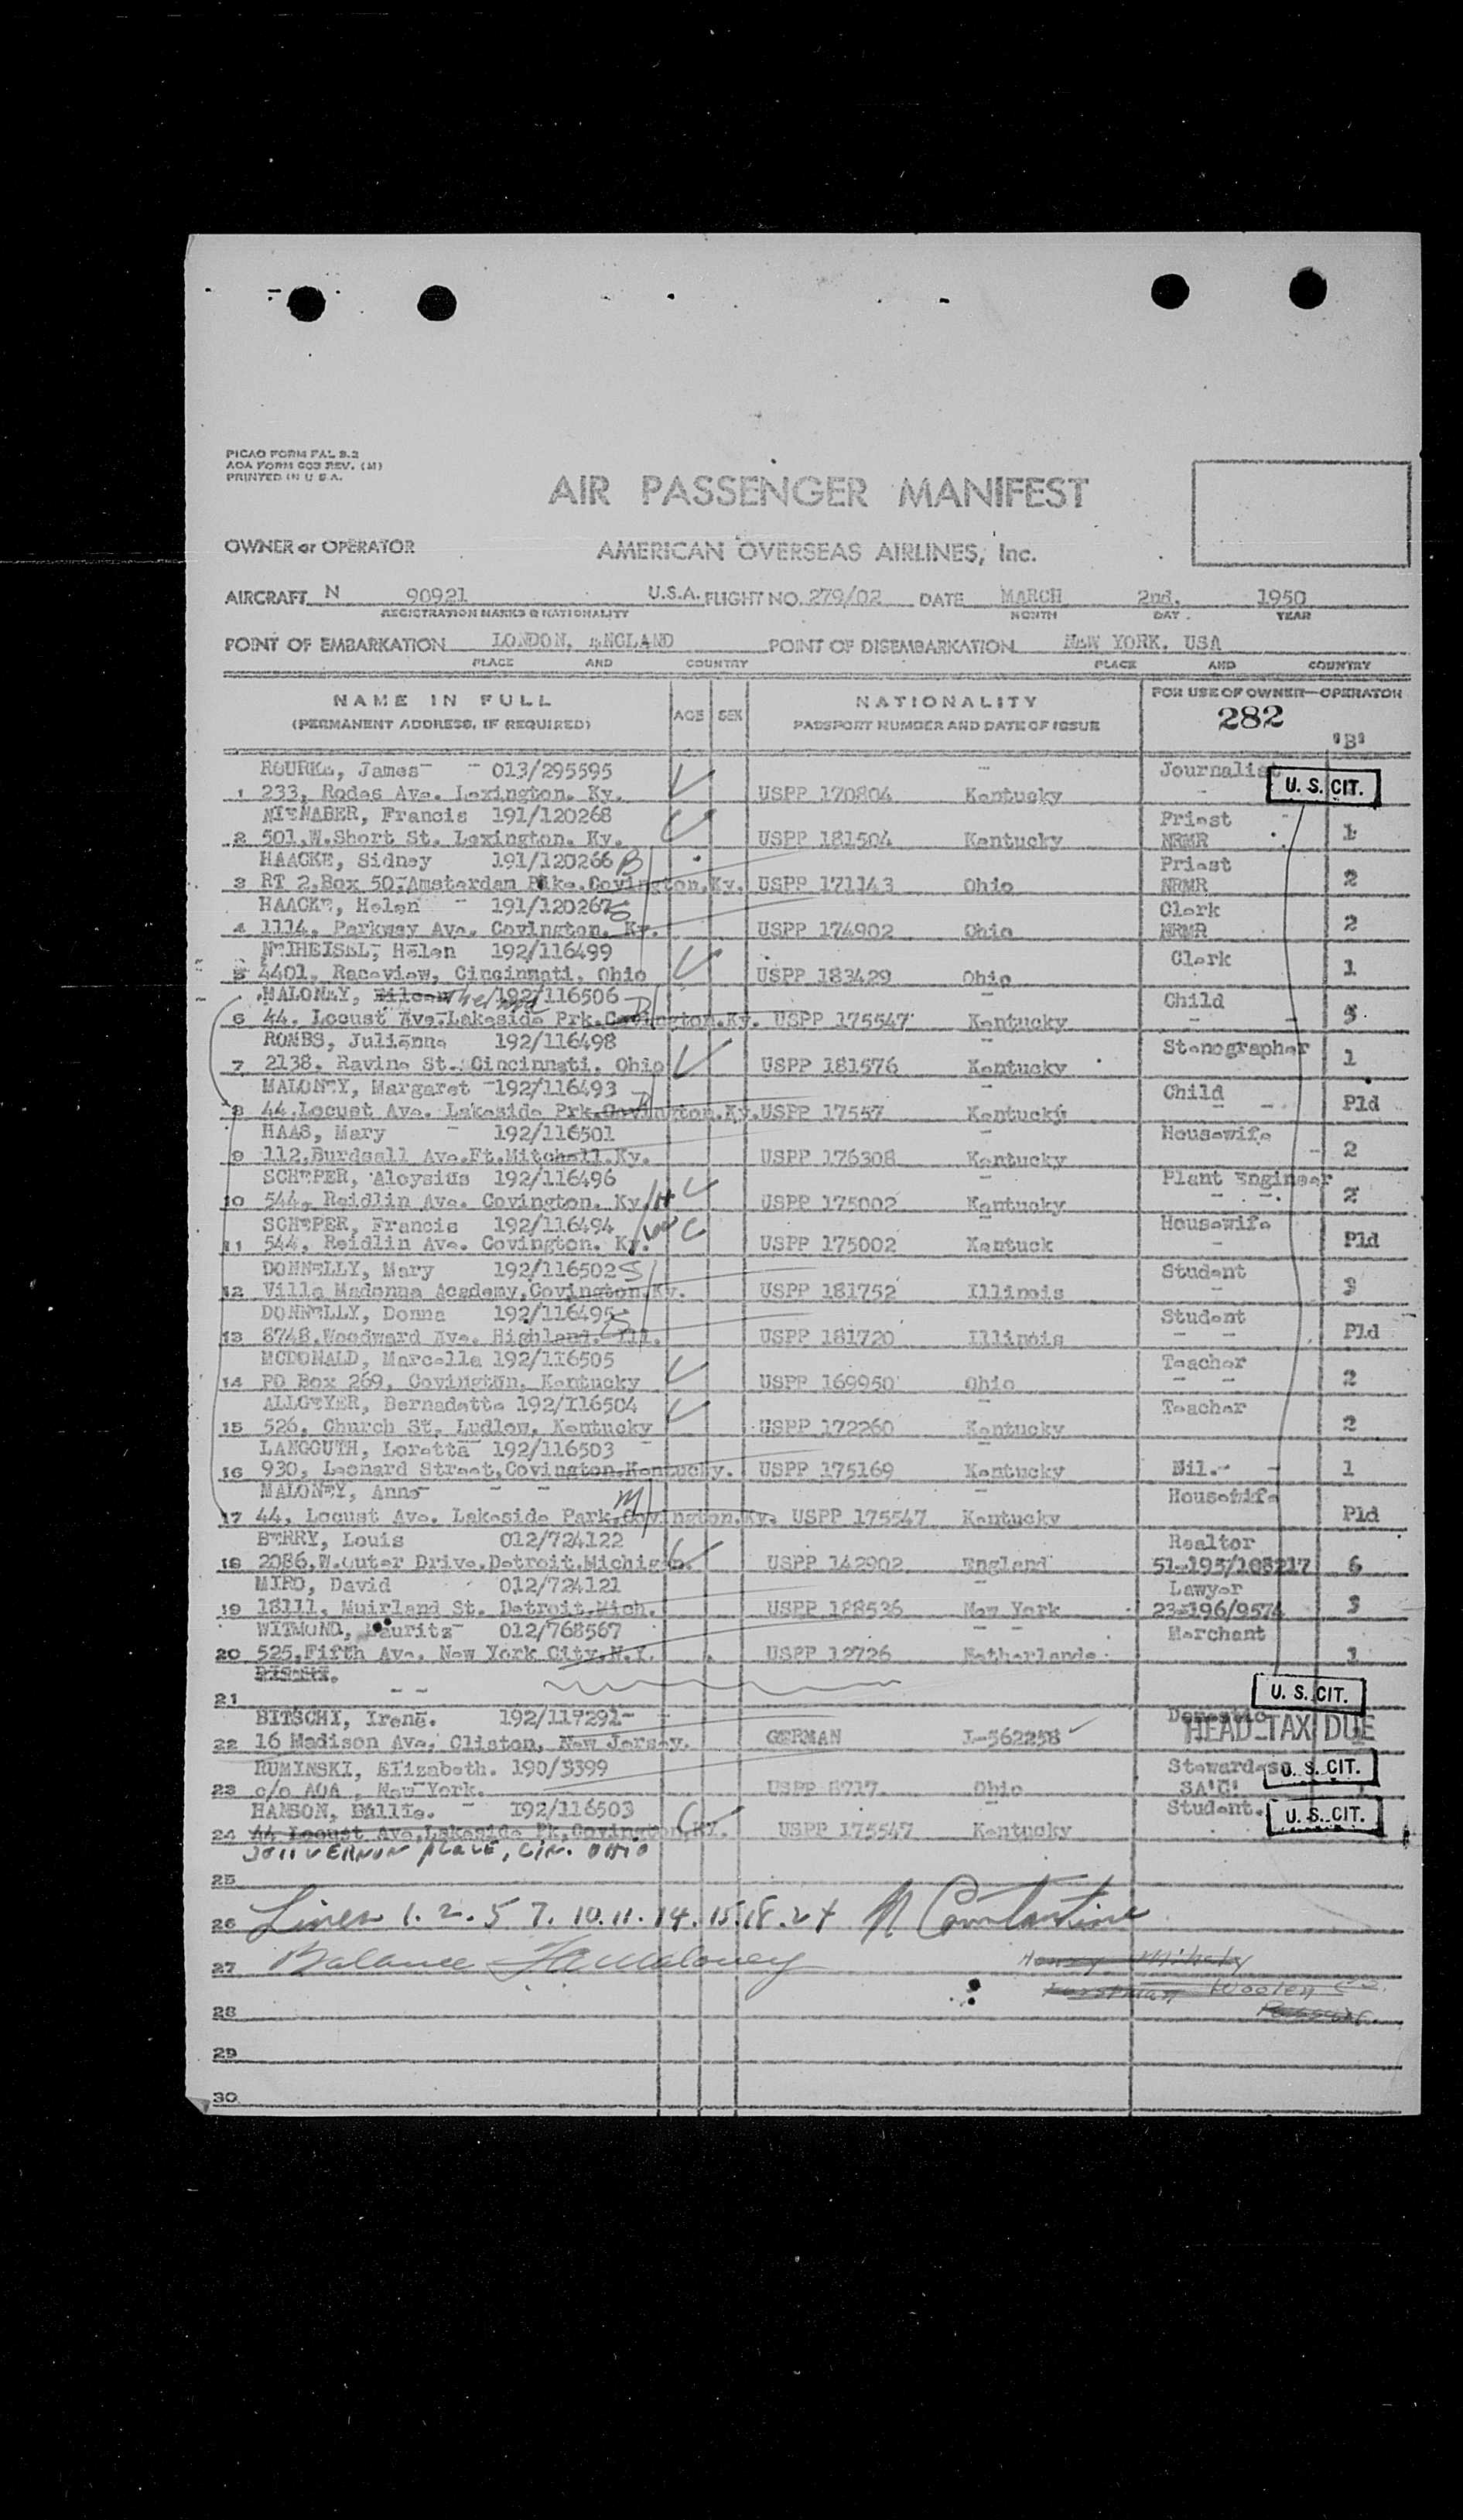 PICAO FORM FAL 9.2
AOA FORM 603 REV. (M)
PRINTED IN U S A.
AIR PASSENGER MANIFEST
OWNER or OPERATOR AMERICAN OVERSEAS AIRLINES, Inc.
AIRCRAFT N 90921 U.S.A. FLIGHT NO. 279/02 DATE MARCH 2nd. 1950
REGISTRATION MARKS & NATIONALITY MONTH DAY YEAR
POINT OF EMBARKATION LONDON, ENGLAND POINT OF DISEMBARKATION NEW YORK. USA
PLACE AND COUNTRY PLACE AND COUNTRY
NAME IN FULL AGE SEX NATIONALITY FOR USE OF OWNER—OPERATOR
(PERMANENT ADDRESS, IF REQUIRED) PASSPORT NUMBER AND DATE OF ISSUE 282
"B"
ROURKE, James 013/295595 Journalist
1 233, Rodes Ave. Lexington. Ky. USPP 170804 Kentucky U. S. CIT.
NIENABER, Francis 191/120268 Priest
2 501,W.Short St. Lexington. Ky. USPP 181504 Kentucky NRMR 1
HAACKE, Sidney 191/120266 Priest
3 RT 2,Box 50,Amsterdam Pike.Covington,Ky. USPP 171143 Ohio NRMR 2
HAACKE, Helen 191/120267 Clerk
4 1114, Parkway Ave. Covington. Ky. USPP 174902 Ohio NRMR 2
NEIHEISEL, Helen 192/116499 Clerk
5 4401, Raceview, Cincinnati, Ohio USPP 183429 Ohio 1
MALONEY, Thelma 192/116506 Child
6 44. Locust Ave.Lakeside Prk.Covington.Ky. USPP 175547 Kentucky 5
ROMBS, Julianna 192/116498 Stenographer
7 2138, Ravine St. Cincinnati, Ohio USPP 181576 Kentucky 1
MALONEY, Margaret 192/116493 Child
8 44.Locust Ave. Lakeside Prk.Covington.Ky.USPP 17557 Kentucky Pld
HAAS, Mary 192/116501 Housewife
9 112,Burdsall Ave.Ft.Mitchell.Ky. USPP 176308 Kentucky 2
SCHEPER, Aloysius 192/116496 Plant Engineer
10 544, Reidlin Ave. Covington. Ky. H USPP 175002 Kentucky 2
SCHEPER, Francis 192/116494 Housewife
11 544, Reidlin Ave. Covington. Ky. USPP 175002 Kentuck Pld
DONNELLY, Mary 192/116502 Student
12 Villa Madonna Academy,Covington.Ky. USPP 181752 Illinois 3
DONNELLY, Donna 192/116495 Student
13 8748,Woodward Ave. Highland. Ill. USPP 181720 Illinois Pld
MCDONALD, Marcella 192/116505 Teacher
14 PO Box 269, Covington, Kentucky USPP 169950 Ohio 2
ALLGEYER, Bernadette 192/116504 Teacher
15 526, Church St, Ludlow, Kentucky USPP 172260 Kentucky 2
LANGOUTH, Loretta 192/116503
16 930, Leonard Street,Covington,Kentucky. USPP 175169 Kentucky Nil. 1
MALONEY, Anne Housewife
17 44, Locust Ave. Lakeside Park,Covington.Ky. USPP 175547 Kentucky Pld
BERRY, Louis 012/724122 Realtor
18 2086,W.Outer Drive.Detroit.Michigan. USPP 142902 England 51-195/108217 6
MIRO, David 012/724121 Lawyer
19 18111, Muirland St. Detroit,Mich. USPP 188536 New York 23-196/9574 3
WITMOND, Mauritz 012/768567 Merchant
20 525,Fifth Ave. New York City,N.Y. USPP 12726 Netherlands 1
21 U. S. CIT.
BITSCHI, Irene. 192/117291 Domestic
22 16 Madison Ave, Clinton, New Jersey. GERMAN I-562258 HEAD TAX DUE
RUMINSKI, Elizabeth. 190/3399 Stewardess U. S. CIT.
23 c/o AOA , New York. USPP 8717. Ohio SA'C'
HANSON, Billie. 192/116503 Student. U. S. CIT.
24 44 Locust Ave,Lakeside Pk,Covington,Ky. USPP 175547 Kentucky
VERNON PLACE, CIN. OHIO
25
26 Lines 1. 2. 5 7. 10. 11. 14. 15. 18. 24 N Constantine
27 Balance Maloney
Woolen Co.
28
29
30